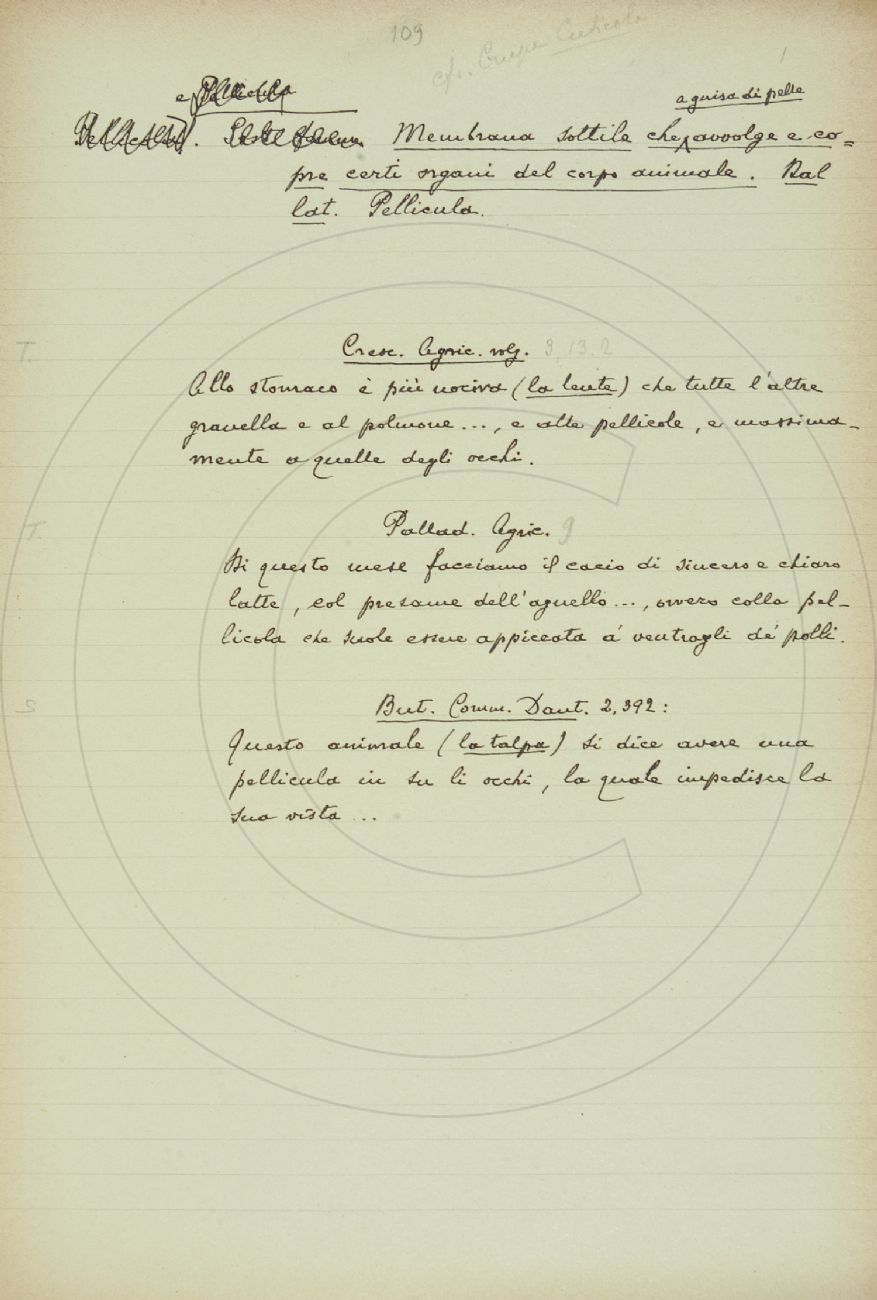 109
cfr. Crupa Cuticola
a guisa di pelle
e Pellicula
Pellicola. Sost. femm. Membrana sottile che avvolge e co=
pre certi organi del corpo animale. Dal
lat. Pellicula.
T.
Cresc. Agric. volg. 3, 13. 2
Allo stomaco è più nociva (la lente) che tutte l'altre
granella e al polmone ..., e alle pellicole, e massima-
mente a quelle degli occhi.
T.
Pallad. Agric. 9
Di questo mese facciamo il cacio di sincero e chiaro
latte, col presame dell'agnello ..., ovvero colla pel-
licola che suole essere appiccata a' ventragli de' polli.
S
But. Comm. Dant. 2, 392:
Questo animale (la talpa) si dice avere una
pellicula in su li occhi, la quale impedisce la
sua vista ...